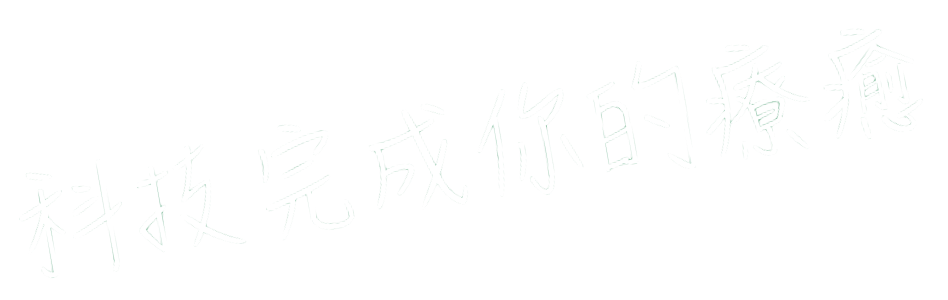 科技完成你的療癒